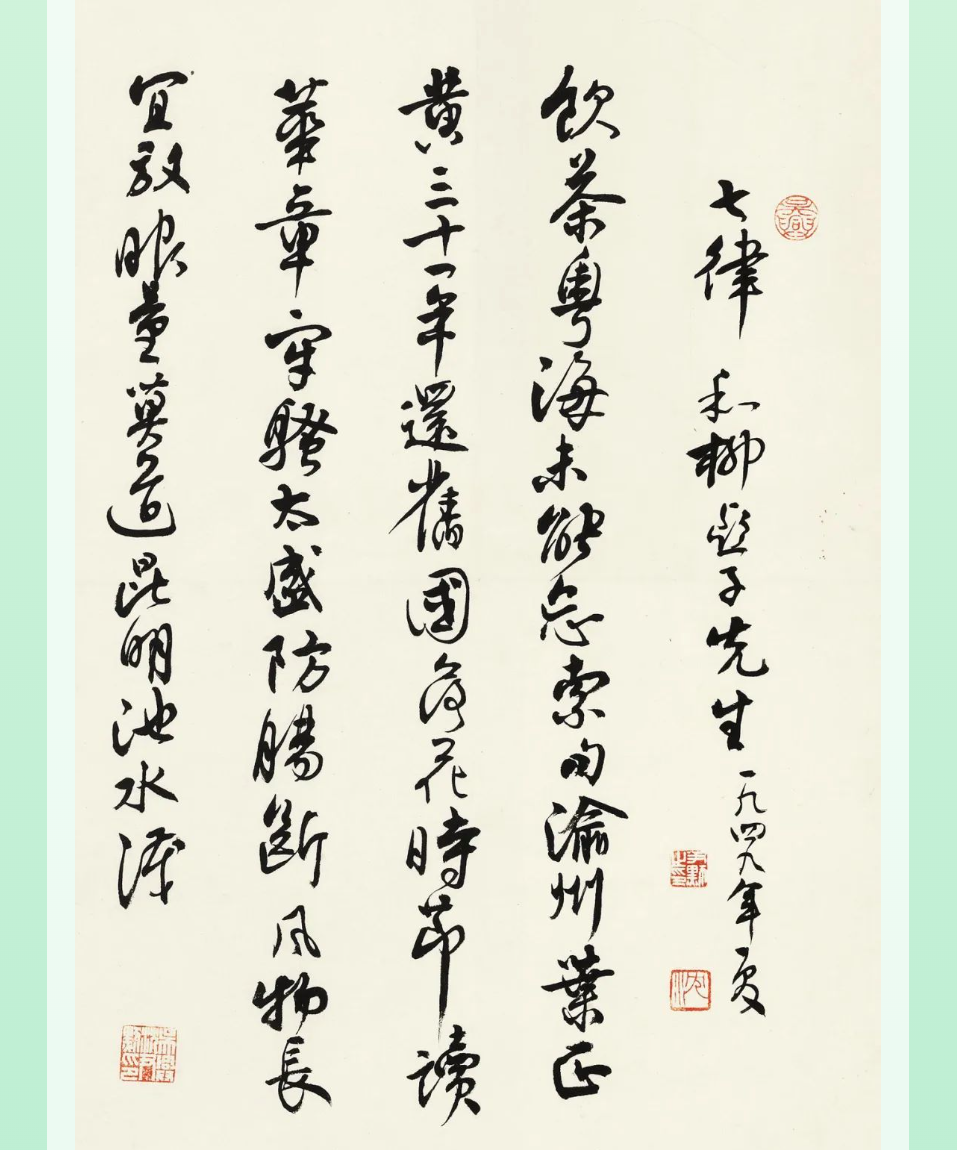 七律 和柳亞子先生 一九四九年夏
飲茶粵海未能忘索句渝州葉正
黄三十一年還舊國落花時節讀
華章牢騷太盛防腸斷風物長
宜放眼量莫道昆明池水淺